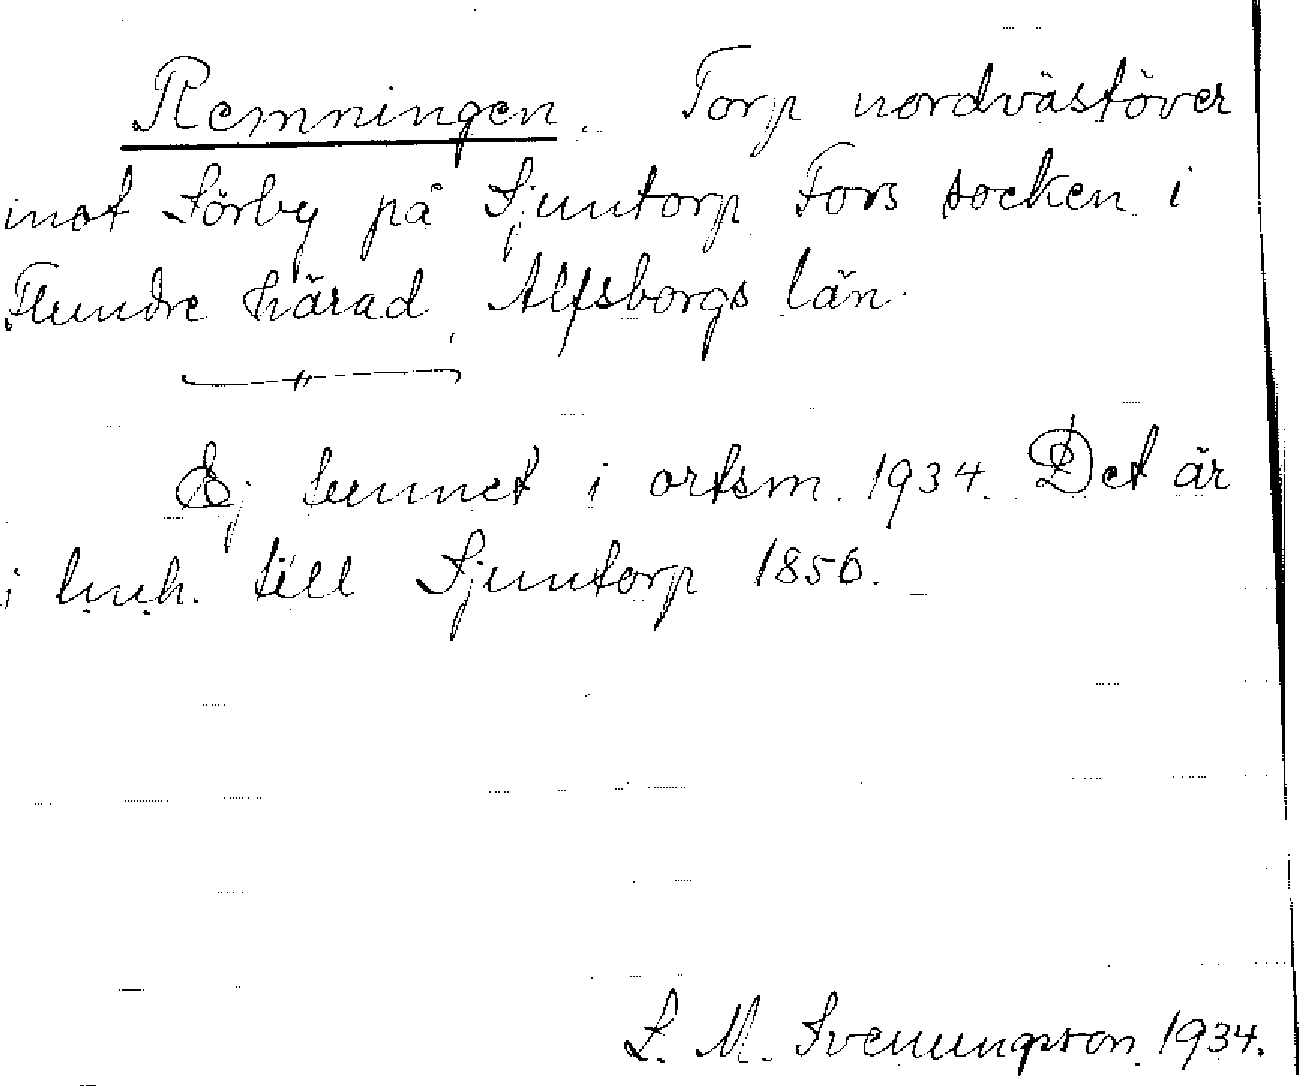 Remningen. Torp nordvästöver
mot Sörby på Sjuntorp Fors socken i
Flundre härad, Alfsborgs län.
Ej funnet i ortsm. 1934. Det är
i till Sjuntorp 1850.
S. M. Svenungsson 1934.